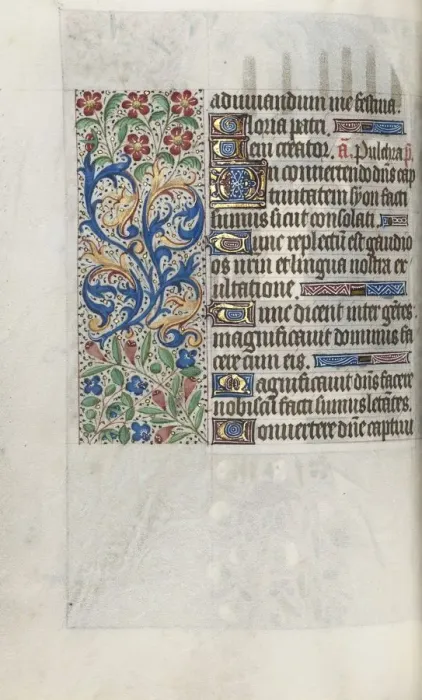 adiuuandum me festina.
Gloria patri.
Ueni creator. a. Pulchra p.
In conuertendo dns cap
tiuitatem syon facti
sumus sicut consolati.
Tunc repletū est gaudio
os nrm et lingua nostra ex
ultatione.
Tunc dicent inter gētes.
magnificauit dominus fa
cere cum eis.
Magnificauit dns facere
nobiscū facti sumus letātes.
Conuertere dne captiui